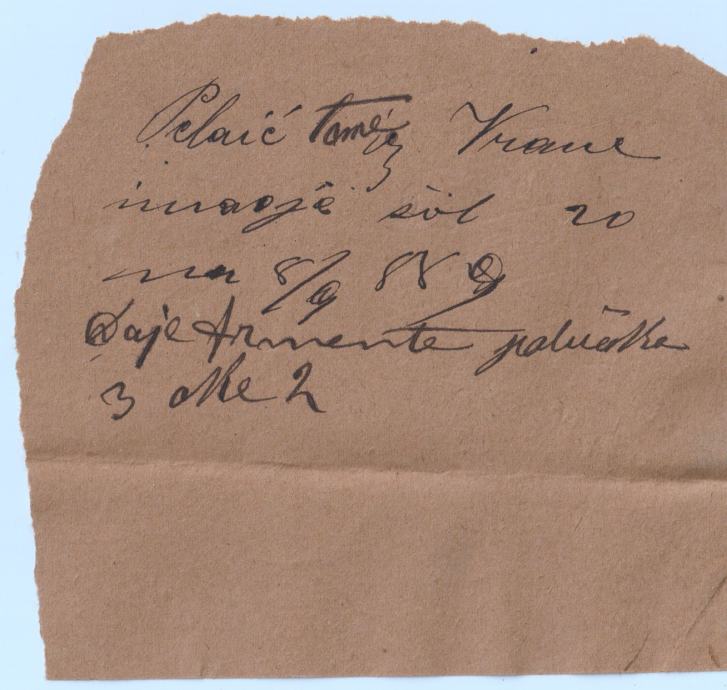 Pelaić Tome iz Vrane
imaoje šol 20
na 8/9 889
Daje formente polučke
3 oke 2